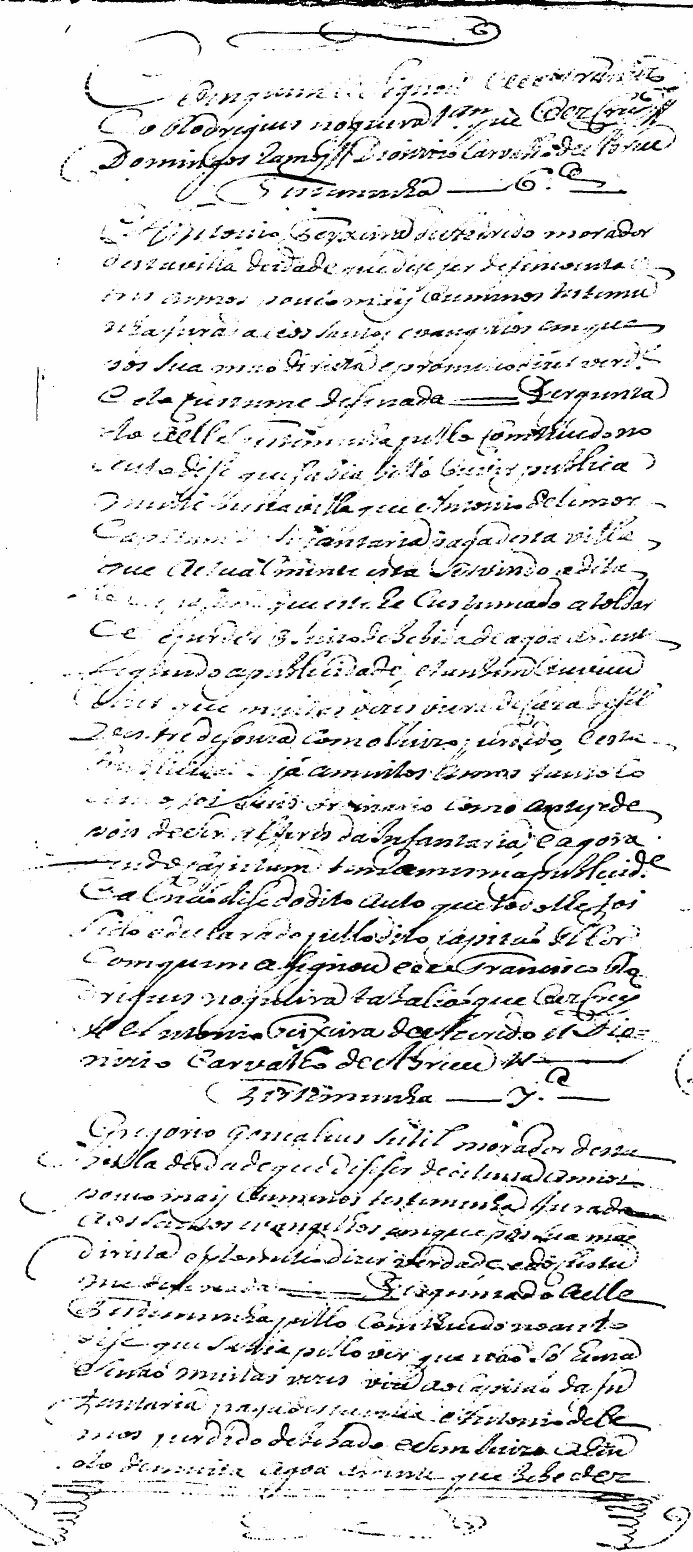 Comquem asignou e eu Francis
co Rodrigues nogueira tam que o escrevy
Domingos Ramos Dionizio Carvalho de Abreu
Testemunha 6.ª
Antonio Teyxeira de Azevedo morador
desta villa de idade que dise ser de sincoenta e
tres annos pouco mais ou menos testemu
nha jurada aos santos evangelhos em que
pos sua mao direita e prometeo dizer verd.e
e do custume dise nada Pergunta
do a elle testemunha pello contheudo no
auto dise que sabia pello ouvir publica
mente nesta villa que Antonio de Lemos
Capitam de Infantaria paga desta villa
que actualmente esta servindo a dita
que este he custumado a toldar
ce e perder o juizo de bebida de agoa ardente
segundo a publicidade, e tambem ouviu
dizer que muitas vezes viera de caza de Sil
vestre de souza com o juizo perdido, e esta
publicidade e já a muitos annos tanto co
mo foi Juis ordinario como antes e de
pois de ser Alferes da Infantaria, e agora
sendo capitam tem a mesma publicid.e
e al nao dise do dito auto que todo lhe foi
lido e declarado pello dito capitao
comquem asignou e eu Francisco Ro
drigues nogueira tabaliao que o escrevy
Antonio Teixeira de Azevedo Dio=
nizio Carvalho de Abreu
Testemunha 7.ª
Gregorio Gonsalves Sutil morador desta
villa de idade que dis ser de oitenta annos
pouco mais ou menos testemunha jurada
aos santos evangelhos em que pos sua mao
direita e prometeo dizer verdade e do custu
me dise nada Perguntado a elle
testemunha pello contheudo no auto
dise que sabia pello ver que nao só huma
senao muitas vezes vira ao Capitao da In
fantaria paga desta villa Antonio de Le
mos perdido de bebado e sem juizo
de muita agoa ardente que bebe de